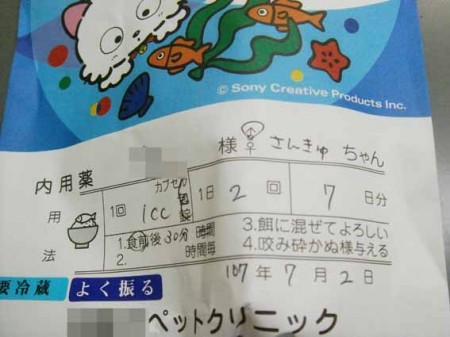 © Sony Creative Products Inc.
様 さんきゅ ちゃん
内用薬
用法
1回 1cc カプセル 包 錠 1日 2 回 7 日分
1.食前後30分 時間
2. 時間毎
3.餌に混ぜてよろしい
4.咬み砕かぬ様与える
'07年 7月 2日
要冷蔵 よく振る
ペットクリニック